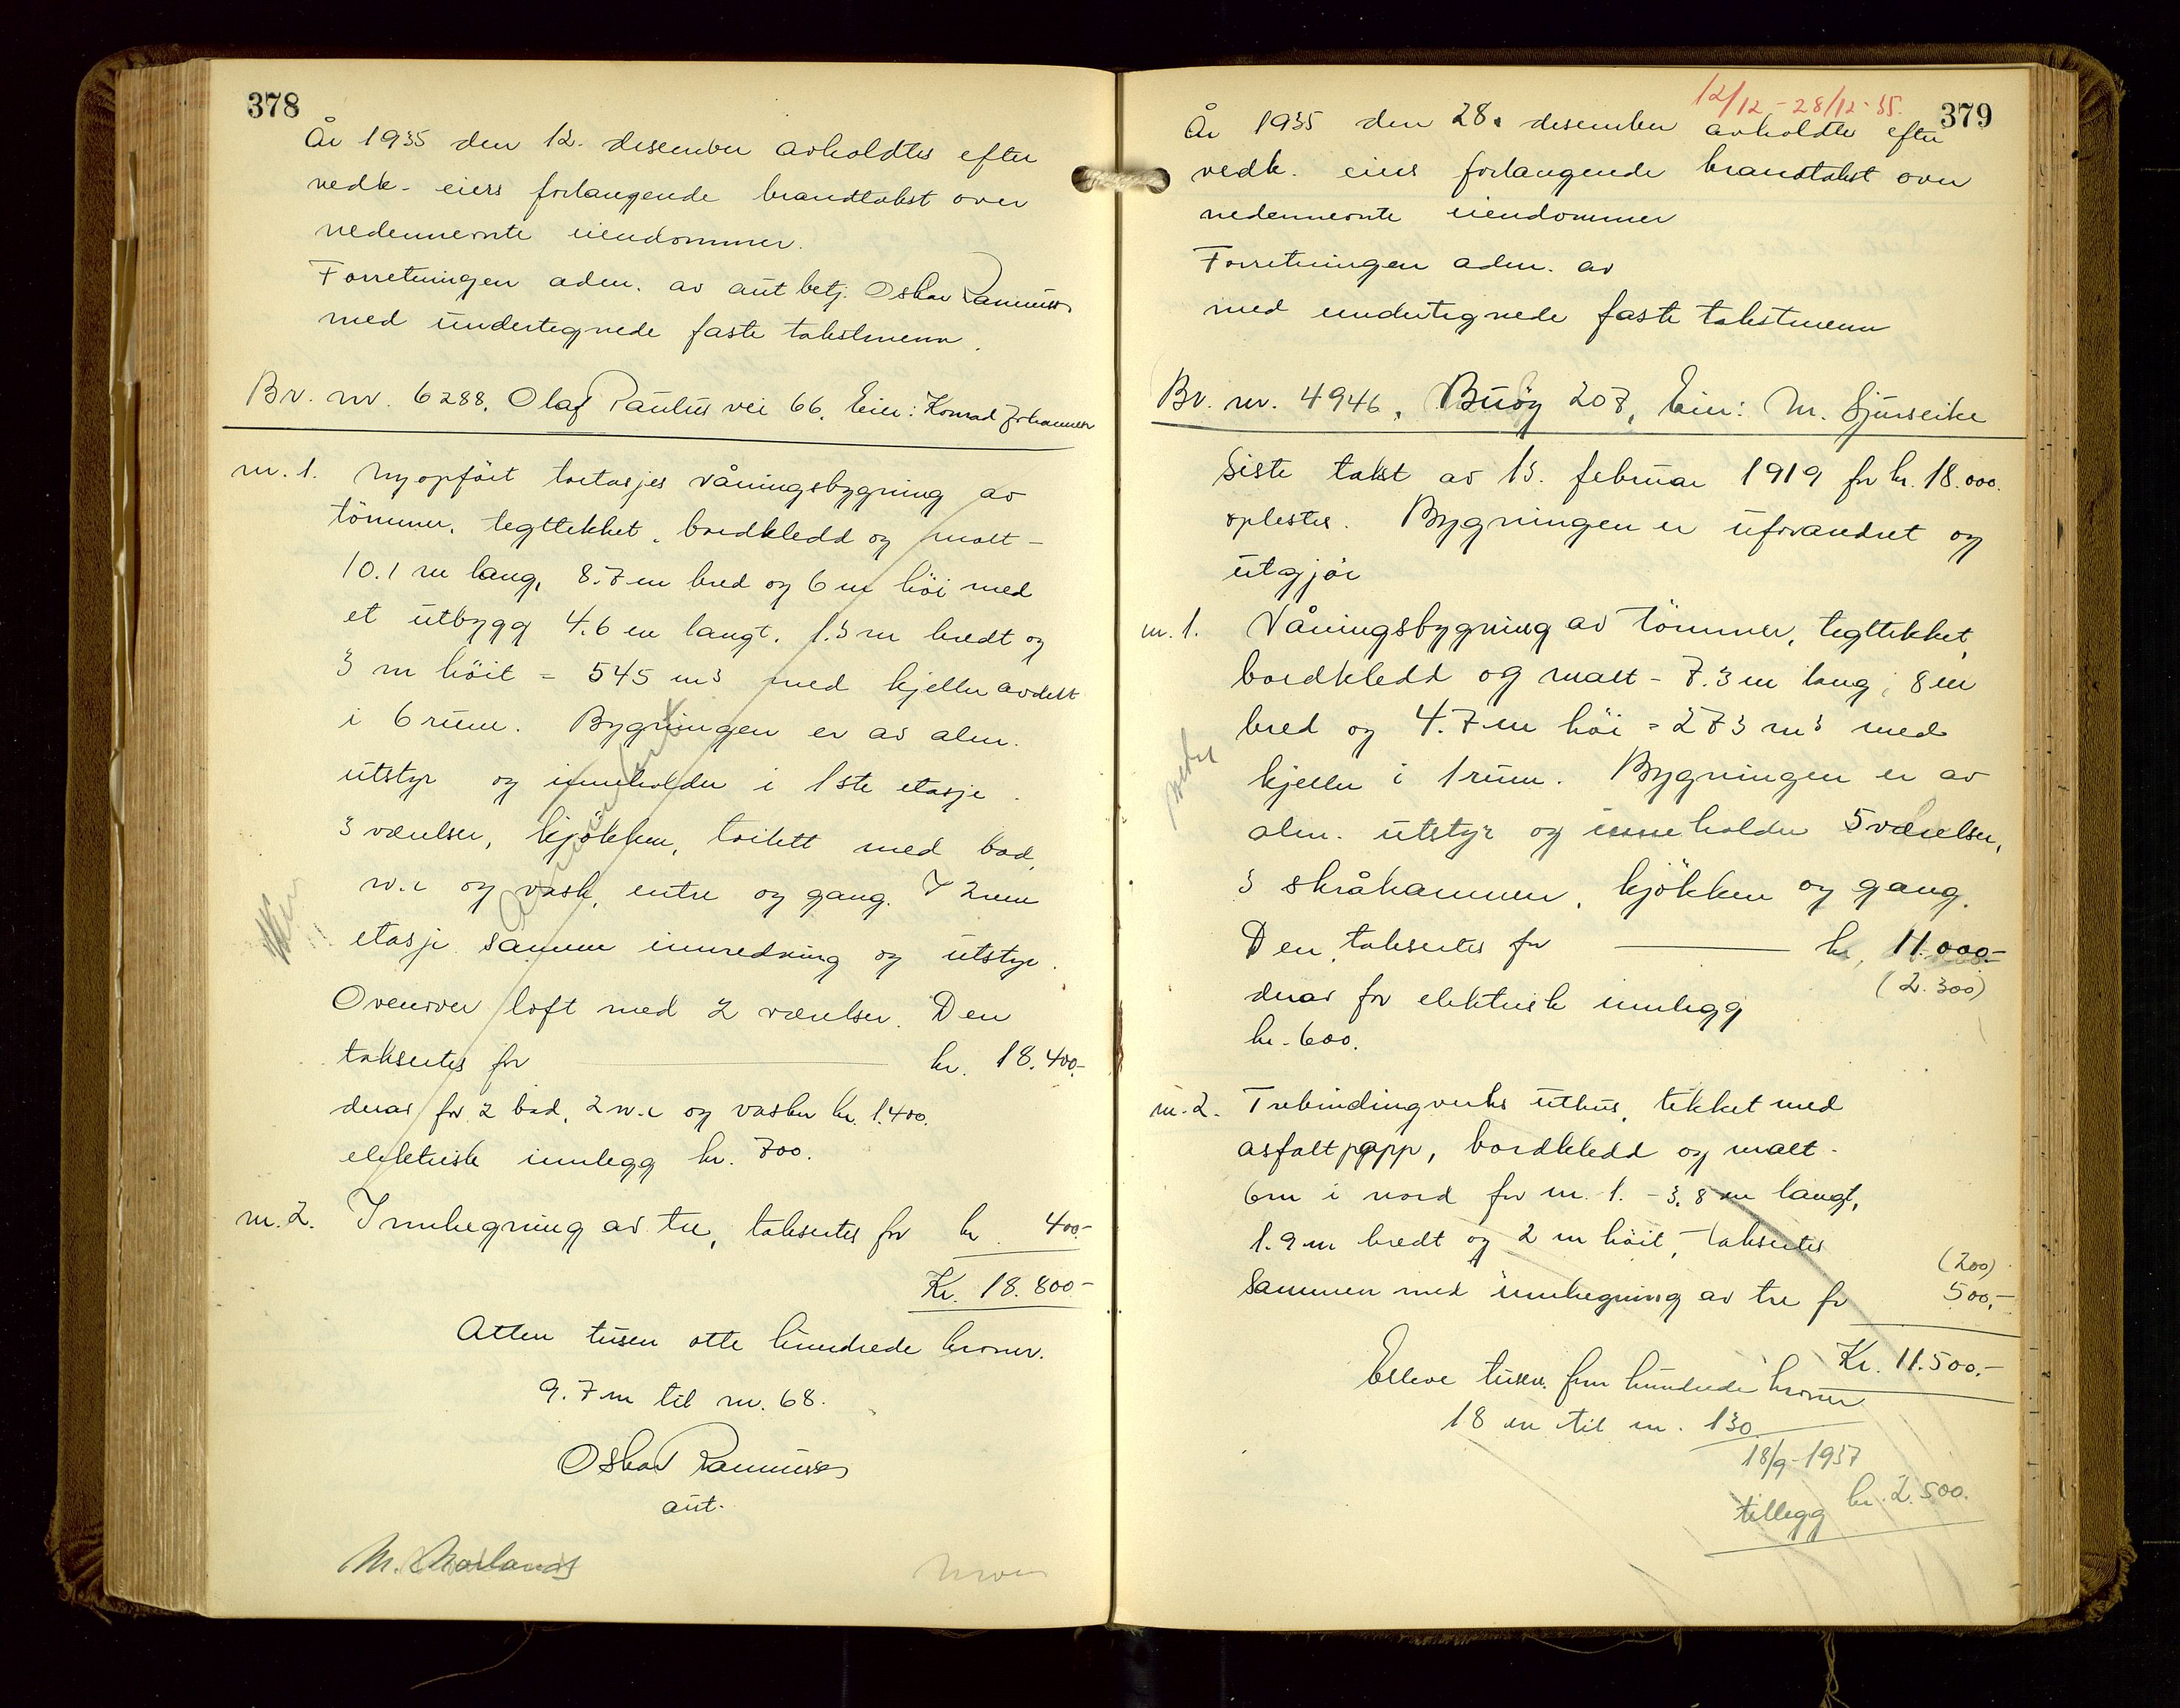 378
År 1935 den 12. desember avholdtes efter
vedk. eiers forlangende brandtakst over
nedennevnte eiendommer.
Forretningen adm. av aut betj. Oskar Rasmussen
med undertegnede faste takstmenn.
Br. nr. 6288. Olaf Paulus vei 66. Eier: Konrad Johannesen
nr. 1. Nyopført toetasjes våningsbygning av
tömmer, tegltekket, bordkledd og malt -
10.1 m lang, 8.7 m bred og 6 m höi med
et utbygg 4.6 m langt, 1.3 m bredt og
3 m höit = 545 m3 med kjeller avdelt
i 6 rum. Bygningen er av alm.
utstyr og inneholder i 1ste etasje
3 værelser, kjökken, toilett med bad,
w.c og vask, entre og gang. I 2nen
etasje samme innredning og utstyr.
Ovenover loft med 2 værelser. Den
takseres for kr. 18.400.-
derav for 2 bad, 2 w.c og vasker kr. 1.400.
elektrisk innlegg kr. 700.
nr. 2. Innhegning av tre, takseres for kr. 400.-
Kr. 18.800.-
Atten tusen otte hundrede kroner.
9.7 m til nr. 68.
Oskar Rasmussen
aut.
M. Marland
12/12 - 28/12-35.
379
År 1935 den 28. desember avholdtes efter
vedk. eiers forlangende brandtakst over
nedennevnte eiendommer
Forretningen adm. av
med undertegnede faste takstmenn
Br. nr. 4946. Buöy 207, Eier: M. Sjurseike
Siste takst av 13. februar 1919 for kr. 18.000.
oplestes. Bygningen er uforandret og
utgjör
nr. 1. Våningsbygning av tömmer, tegltekket,
bordkledd og malt - 7.3 m lang, 8 m
bred og 4.7 m höi = 273 m3 med
kjeller i 1 rum. Bygningen er av
alm. utstyr og inneholder 5 værelser,
3 skråkammer, kjökken og gang.
Den takseres for kr. 11.000.-
(2.300)
derav for elektrisk innlegg
kr. 600.
nr. 2. Trebindingverks uthus, tekket med
asfaltpapp, bordkledd og malt -
6 m i nord for nr. 1. - 3.8 m langt,
1.9 m bredt og 2 m höit, takseres
(200)
sammen med innhegning av tre for 500.-
Kr. 11.500.-
Elleve tusen fem hundrede kroner
18 m til nr. 130
18/9-1937
tillegg kr. 2.500.